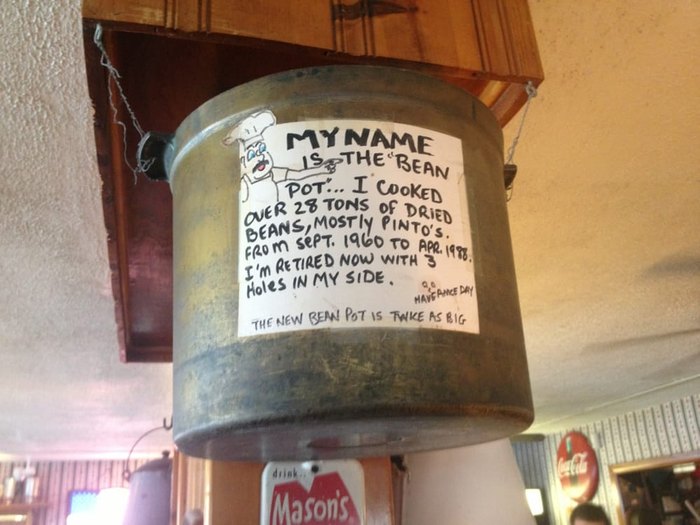 MY NAME
IS THE "BEAN
POT"... I COOKED
OVER 28 TONS OF DRIED
BEANS, MOSTLY PINTO'S.
FROM SEPT. 1960 TO APR. 1988.
I'M RETIRED NOW WITH 3
HOLES IN MY SIDE.
HAVE A NICE DAY
THE NEW BEAN POT IS TWICE AS BIG
drink...
Mason's
Coca-Cola